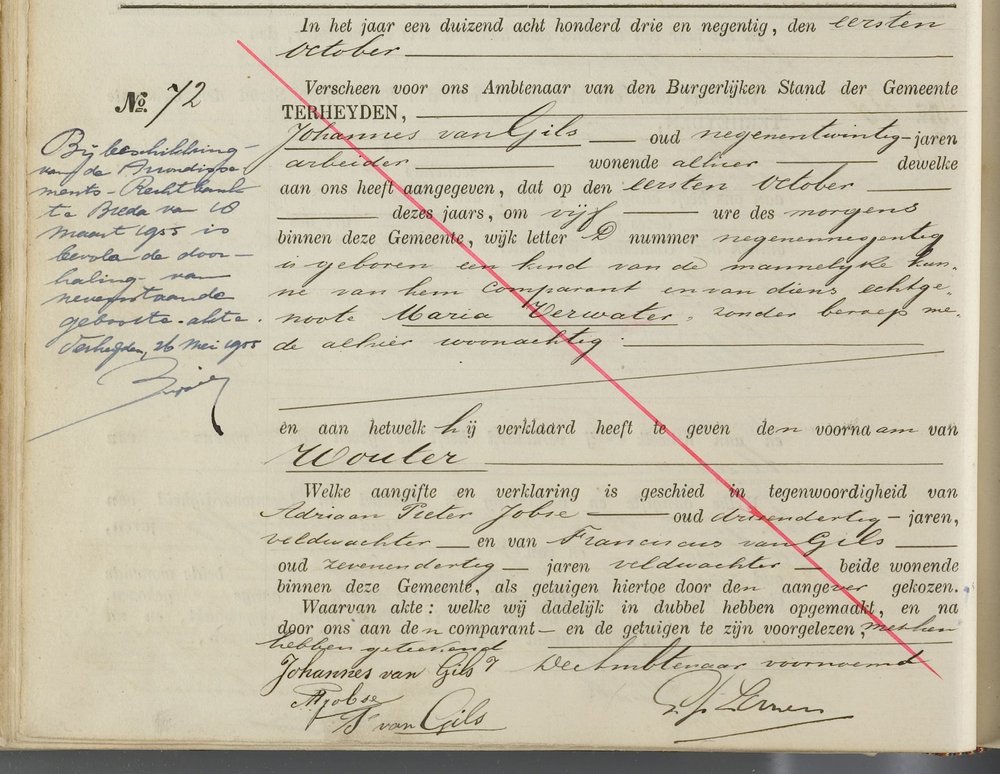 In het jaar een duizend acht honderd drie en negentig, den eersten
October
No. 72
Verscheen voor ons Ambtenaar van den Burgerlijken Stand der Gemeente
TERHEYDEN,
Johannes van Gils oud negenentwintig jaren
arbeider wonende alhier dewelke
aan ons heeft aangegeven, dat op den eersten October
dezes jaars, om vijf ure des morgens
binnen deze Gemeente, wijk letter D nummer negenennegentig
is geboren een kind van de mannelijke kun-
ne van hem comparant en van diens echtge-
noote Maria Verwater, zonder beroep me-
de alhier woonachtig.
en aan hetwelk hij verklaard heeft te geven den voornaam van
Wouter
Welke aangifte en verklaring is geschied in tegenwoordigheid van
Adriaan Pieter Jobse oud drieendertig jaren,
veldwachter en van Franciscus van Gils
oud zevenendertig jaren veldwachter beide wonende
binnen deze Gemeente, als getuigen hiertoe door den aangever gekozen.
Waarvan akte: welke wij dadelijk in dubbel hebben opgemaakt, en na
door ons aan den comparant en de getuigen te zijn voorgelezen, met hen
hebben geteekend
Johannes van Gils De Ambtenaar voornoemd
AP Jobse
F van Gils
Bij beschikking
van de Arrondisse
ments-Rechtbank
te Breda van 18
maart 1955 is
bevolen de door-
haling van
nevenstaande
geboorte-akte.
Terheijden, 26 Mei 1955